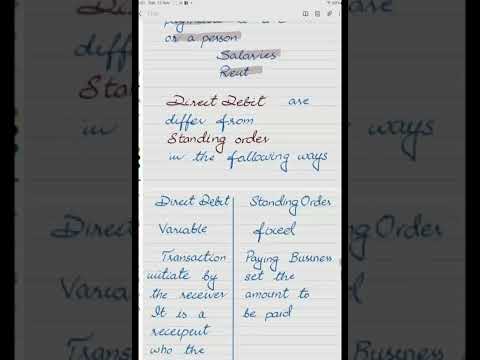 or a person
Salaries
Rent
Direct Debit are
differ from
Standing order
in the following ways
Direct Debit
Variable
Transaction
initiate by
the receiver
It is a
receipent
who the
Standing Order
fixed
Paying Business
set the
amount to
be paid